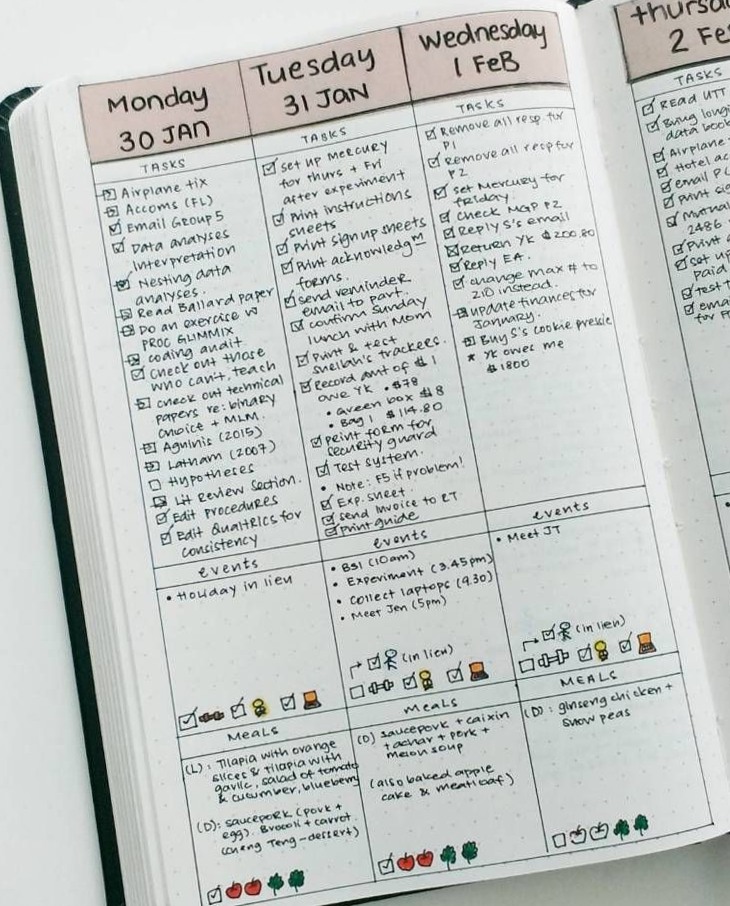 Monday
30 JAN
TASKS
Airplane tix
Accoms (FL)
Email Group 5
Data analyses
interpretation
Nesting data
analyses.
Read Ballard paper
Do an exercise w
PROC GLIMMIX
coding audit
check out those
who can't, teach
check out technical
papers re: binary
choice + MLM.
Aguinis (2015)
Latham (2007)
Hypotheses
Lit Review section.
Edit Procedures
Edit Qualtrics for
consistency
events
• Holiday in lieu
MEALS
(L): Tilapia with orange
slices & tilapia with
garlic, salad of tomato
& cucumber, blueberry
(D): saucepork (pork +
egg). Brocoli + carrot.
(cheng Teng-dessert)
Tuesday
31 JAN
TASKS
set up MERCURY
for thurs + Fri
after experiment
Print instructions
sheets
Print signup sheets
Print acknowledgm
forms.
send reminder
email to part.
confirm sunday
lunch with Mom
Print & test
sheilah's trackers.
Record amt of $ I
owe YK • $78
• Green box $18
• Bag 1 $114.80
print form for
security guard
Test system.
• Note: F5 if problem!
Exp. sheet
send invoice to RT
Print guide
events
• BSI (10am)
• Experiment (3.45pm)
• collect laptops (9.30)
• Meet Jen (5pm)
(in lieu)
MEALS
(D) saucepork + caixin
+ achar + pork +
melon soup
(also baked apple
cake & meatloaf)
Wednesday
1 FEB
TASKS
Remove all resp. for
P1
Remove all resp for
P2
set Mercury for
friday.
check MGP P2
Reply S's email
Return YK $200.80
Reply EA.
change max # to
210 instead.
update finances for
January.
Buy S's cookie pressie
* YK owes me
$1800
events
• Meet JT
(in lieu)
MEALS
(D): ginseng chicken +
snow peas
thursd
2 Fe
TASKS
READ UTT
Bring longi
data book
Airplane
Hotel ac
email P
Print sig
Manual
2486
Print
set up
paid
Test t
ema
for P